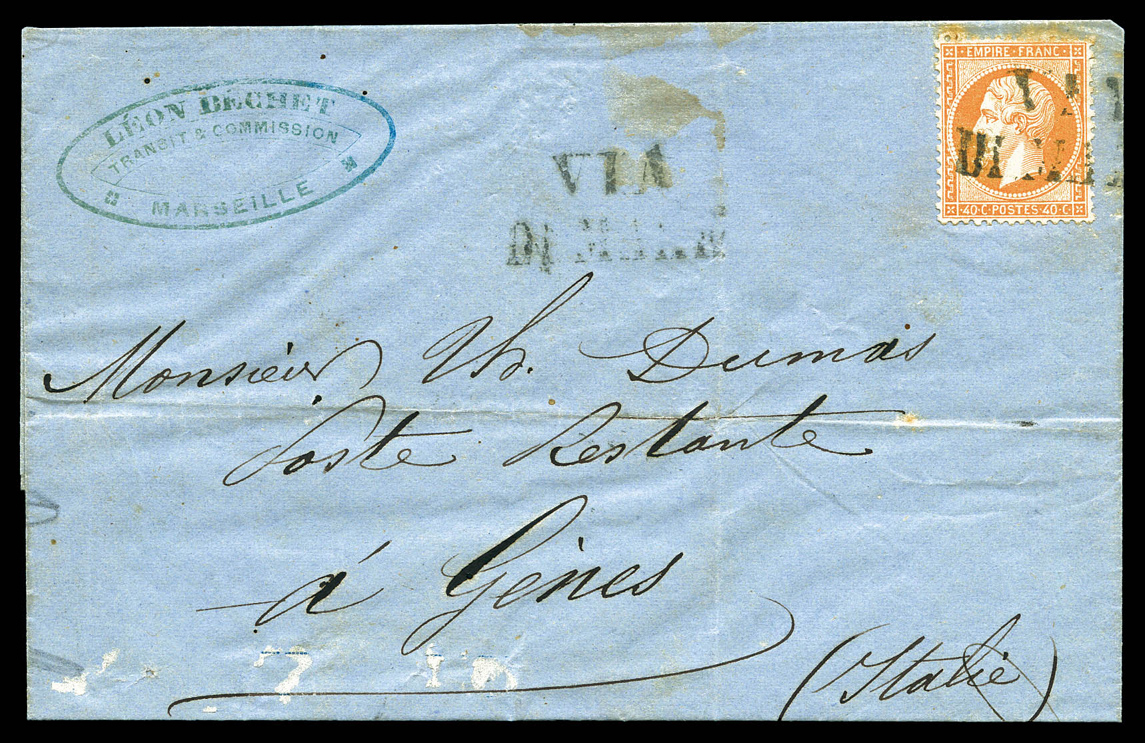 LÉON BÉCHET
TRANSIT & COMMISSION
MARSEILLE
EMPIRE·FRANC·
40·C·POSTES·40·C·
VIA
DI MARE
Monsieur Th. Dumas
Poste Restante
à Gênes
(Italie)